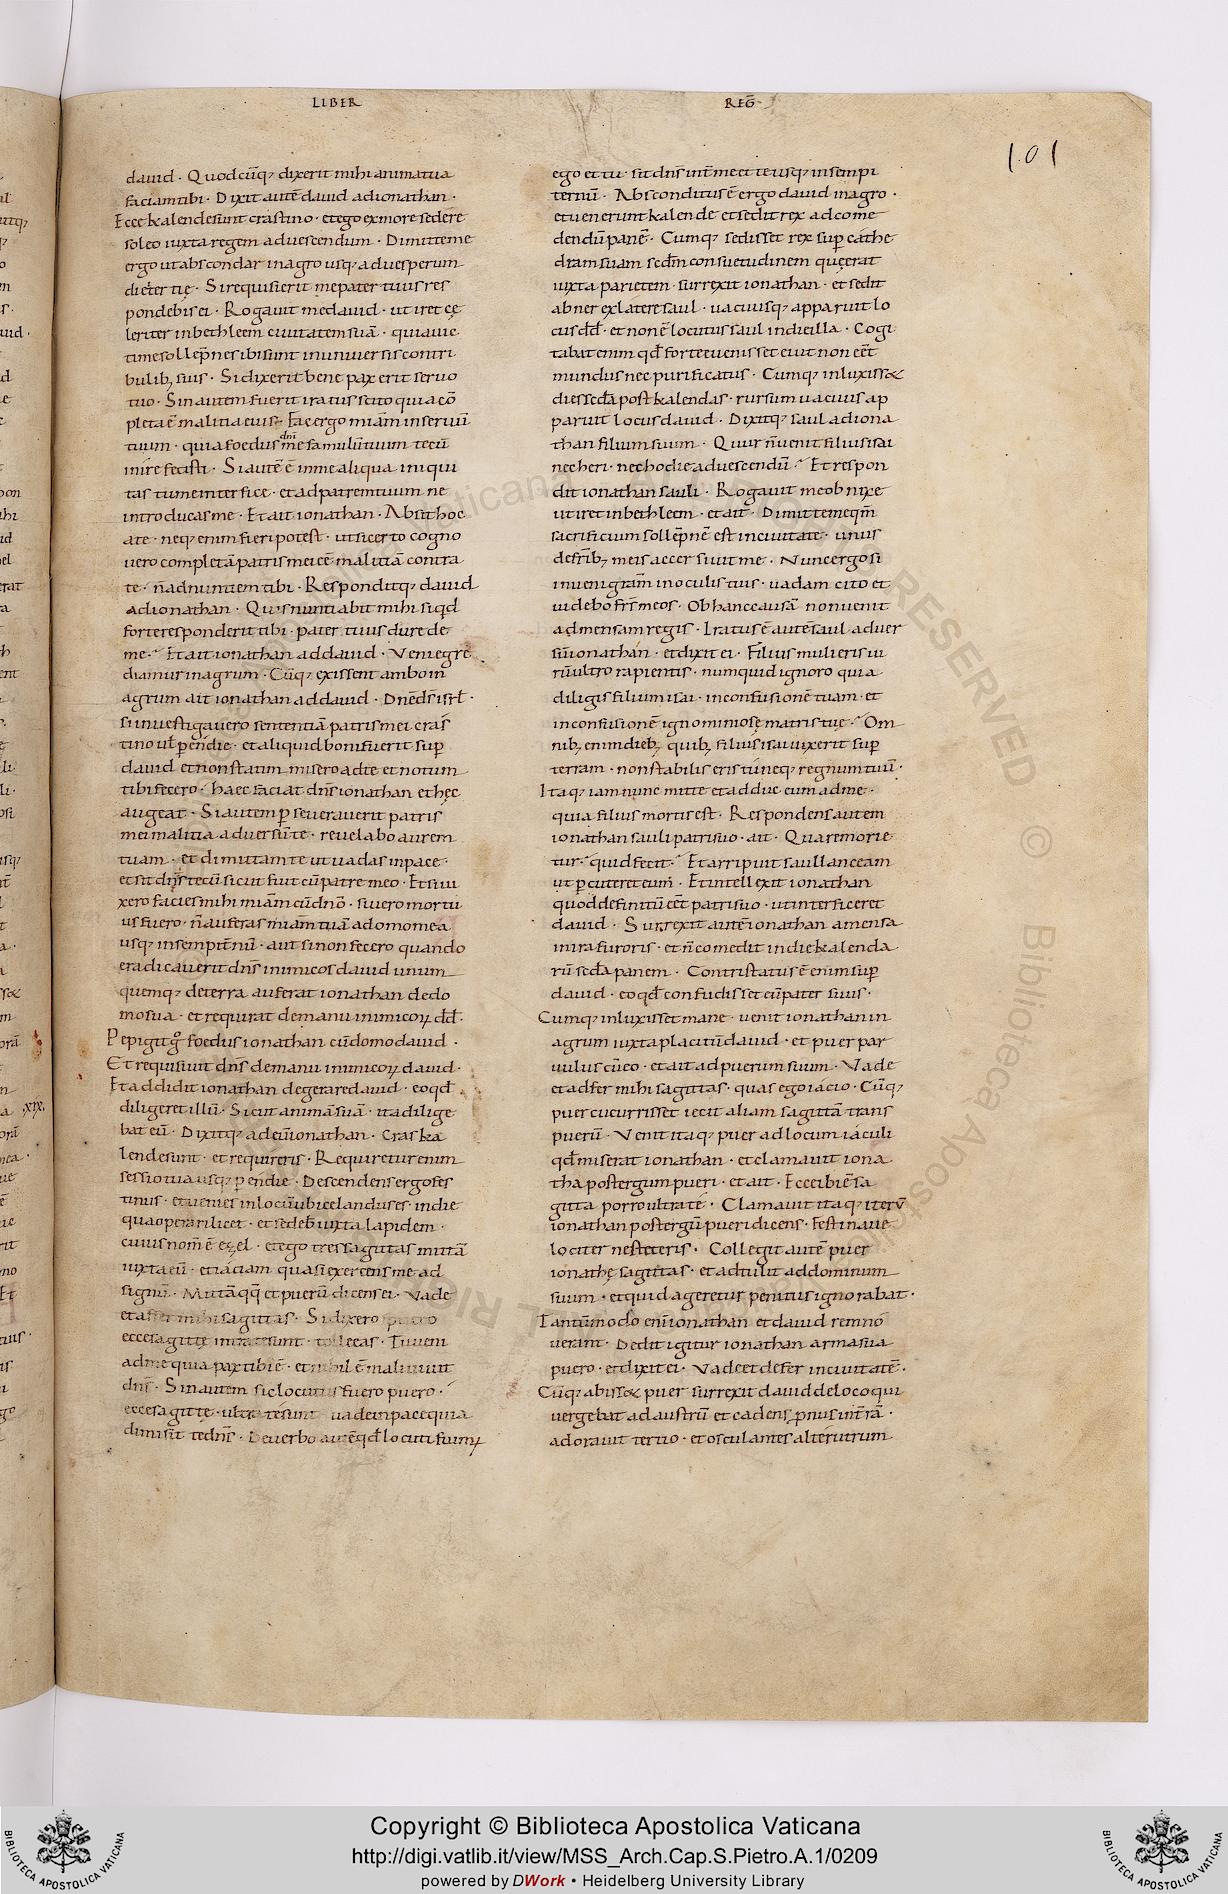 LIBER
REḠ
101
dauid · Quodcūq; dixerit mihi anima tua
faciam tibi · Dixit autē dauid ad ionathan ·
Ecce kalende sunt crastino · et ego ex more sedere
soleo iuxta regem ad uescendum · Dimitte me
ergo ut abscondar in agro usq; ad uesperum
diei tertię · Si requisierit me pater tuus res
pondebis ei · Rogauit me dauid · ut iret ce
leriter in bethleem ciuitatem suā · quia uic
time sollēpnes ibi sunt in uniuersis contri
bulib; suis · Si dixerit bene pax erit seruo
tuo · Sin autem fuerit iratus scito quia cō
pleta ē malitia eius · Fac ergo miām in seruū
tuum · quia foedus dn̄i me famulū tuum tecū
inire fecisti · Si autē ē in me aliqua iniqui
tas tu me interfice · et ad patrem tuum ne
introducas me · Et ait ionathan · Absit hoc
a te · neq; enim fieri potest · ut si certo cogno
uero completā patris mei eē malitiā contra
te · n̄ adnuntiem tibi · Responditq; dauid
ad ionathan · Quis nuntiabit mihi si qd
forte responderit tibi · pater tuus dure de
me · Et ait ionathan ad dauid · Veni egre
diamur in agrum · Cūq; exissent ambo in
agrum ait ionathan ad dauid · Dn̄e ds̄ isrl̄ ·
si inuestigauero sententiā patris mei cras
tino ul̄ perendie · et aliquid boni fuerit sup̄
dauid et non statim misero ad te et notum
tibi fecero · haec faciat dn̄s ionathan et hęc
augeat · Si autem p̄seuerauerit patris
mei malitia aduersū te · reuelabo aurem
tuam · et dimittam te ut uadas in pace ·
et sit dn̄s tecū sicut fuit cū patre meo · Et si ui
xero facies mihi miām cū dn̄o · si uero mortu
us fuero · n̄ auferas miām tuā a domo mea
usq; in sempit̄nū · aut si non fecero quando
eradicauerit dn̄s inimicos dauid unum
quemq; de terra auferat ionathan de do
mo sua · et requirat de manu inimicoꝝ dd̄ ·
Pepigit g̊ foedus ionathan cū domo dauid ·
Et requisiuit dn̄s de manu inimicoꝝ dauid ·
Et addidit ionathan degerare dauid · eo qd̄
diligeret illū · Sicut animā suā · ita dilige
bat eū · Dixitq; ad eū ionathan · Cras ka
lende sunt · et requireris · Requiretur enim
sessio tua usq; perendie · Descendens ergo fes
tinus · et uenies in locū ubi celandus es · in die
qua operari licet · et sedeb̄ iuxta lapidem ·
cuius nom̄ ē ezel · et ego tres sagittas mittā
iuxta eū · et iaciam quasi exercens me ad
signū · Mittā qq̄ et puerū dicens ei · Vade
et affer mihi sagittas · Si dixero puero
ecce sagitte intra te sunt · tolle eas · Tu ueni
ad me quia pax tibi ē · et nihil ē mali uiuit
dn̄s · Sin autem sic locutus fuero puero ·
ecce sagitte · ultra te sunt uade in pace quia
dimisit te dn̄s · De uerbo autē qd̄ locuti fuimꝰ
ego et tu · sit dn̄s int̄ me et te usq; in sempi
ternū · Absconditus ē ergo dauid in agro ·
et uenerunt kalende et sedit rex ad come
dendū panē · Cumq; sedisset rex sup̄ cathe
dram suam sedm̄ consuetudinem quę erat
iuxta parietem · surrexit ionathan · et sedit
abner ex latere saul · uacuusq; apparuit lo
cus dd̄ · et non ē locutus saul in die illa · Cogi
tabat enim qd̄ forte euenisset ei ut non eēt
mundus nec purificatus · Cumq; inluxiss&
dies sēda post kalendas · rursum uacuus ap
paruit locus dauid · Dixitq; saul ad iona
than filium suum · Quur n̄ uenit filius isai
nec heri · nec hodie ad uescendū · Et respon
dit ionathan sauli · Rogauit me obnixe
ut iret in bethleem · et ait · Dimitte me qm̄
sacrificium sollēpne est in ciuitate · unus
de frīb; meis accersiuit me · Nunc ergo si
inueni gram̄ in oculis tuis · uadam cito et
uidebo frs̄ meos · Ob hanc causā non uenit
ad mensam regis · Iratus ē autē saul aduer
sū ionathan · et dixit ei · Filius mulieris ui
rū ultro rapientis · numquid ignoro quia
diligis filium isai · in confusionē tuam · et
in confusionē ignominiosę matris tuę · Om
nib; enim dieb; quib; filius isai uixerit sup̄
terram · non stabilis eris tu neq; regnum tuū ·
Itaq; iam nunc mitte et adduc eum ad me ·
quia filius mortis est · Respondens autem
ionathan sauli patri suo · ait · Quare morie
tur · quid fecit · Et arripuit saul lanceam
ut p̄cuteret eum · Et intellexit ionathan
quod definitū eēt patri suo · ut interficeret
dauid · Surrexit autē ionathan a mensa
in ira furoris · et n̄ comedit in die kalenda
rū sēda panem · Contristatus ē enim sup̄
dauid · eo qd̄ confudisset eū pater suus ·
Cumq; inluxisset mane · uenit ionathan in
agrum iuxta placitū dauid · et puer par
uulus cū eo · et ait ad puerum suum · Vade
et adfer mihi sagittas · quas ego iacio · Cūq;
puer cucurrisset iecit aliam sagittā trans
puerū · Venit itaq; puer ad locum iaculi
qd̄ miserat ionathan · et clamauit iona
than post tergum pueri · et ait · Ecce ibi ē sa
gitta porro ultra te · Clamauit itaq; iterū
ionathan post tergū pueri dicens · Festina ue
lociter ne steteris · Collegit autē puer
ionathę sagittas · et adtulit ad dominum
suum · et quid ageretur penitus ignorabat ·
Tantūmodo enī ionathan et dauid rem no
uerant · Dedit igitur ionathan arma sua
puero · et dixit ei · Vade et defer in ciuitatē ·
Cūq; abiss& puer surrexit dauid de loco qui
uergebat ad austrū et cadens p̄nus in t̄rā ·
adorauit tertio · et osculantes alterutrum
Copyright © Biblioteca Apostolica Vaticana
http://digi.vatlib.it/view/MSS_Arch.Cap.S.Pietro.A.1/0209
powered by DWork • Heidelberg University Library
BIBLIOTECA APOSTOLICA VATICANA
BIBLIOTECA APOSTOLICA VATICANA